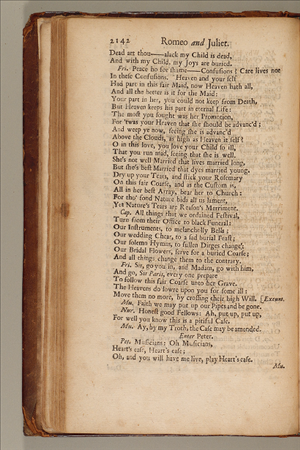 2142 Romeo and Juliet.
Dead art thou—alack my Child is dead,
And with my Child, my Joys are buried.
Fri. Peace ho for shame—Confusions! Care lives not
In these Confusions, Heaven and your self
Had part in this fair Maid, now Heaven hath all,
And all the better is it for the Maid:
Your part in her, you could not keep from Death,
But Heaven keeps his part in eternal Life:
The most you sought was her Promotion,
For 'twas your Heaven that she should be advanc'd:
And weep ye now, seeing she is advanc'd
Above the Clouds, as high as Heaven it self?
O in this love, you love your Child so ill,
That you run mad, seeing that she is well.
She's not well Married that lives married long,
But she's best Married that dyes married young.
Dry up your Tears, and stick your Rosemary
On this fair Coarse, and as the Custom is,
All in her best Array, bear her to Church:
For tho' fond Nature bids all us lament,
Yet Nature's Tears are Reason's Merriment.
Cap. All things that we ordained Festival,
Turn from their Office to black Funeral:
Our Instruments, to melancholly Bells;
Our wedding Chear, to a sad burial Feast;
Our solemn Hymns, to sullen Dirges change;
Our Bridal Flowers, serve for a buried Coarse;
And all things change them to the contrary.
Fri. Sir, go you in, and Madam, go with him,
And go, Sir Paris, every one prepare
To follow this fair Coarse unto her Grave.
The Heavens do lowre upon you for some ill;
Move them no more, by crossing their high Will. [Exeunt.
Mu. Faith we may put up our Pipes and be gone.
Nur. Honest good Fellows: Ah, put up, put up,
For well you know this is a pitiful Case.
Mu. Ay, by my Troth, the Case may be amended.
Enter Peter.
Pet. Musicians: Oh Musicians,
Heart's ease, Heart's ease;
Oh, and you will have me live, play Heart's ease.
Mu.